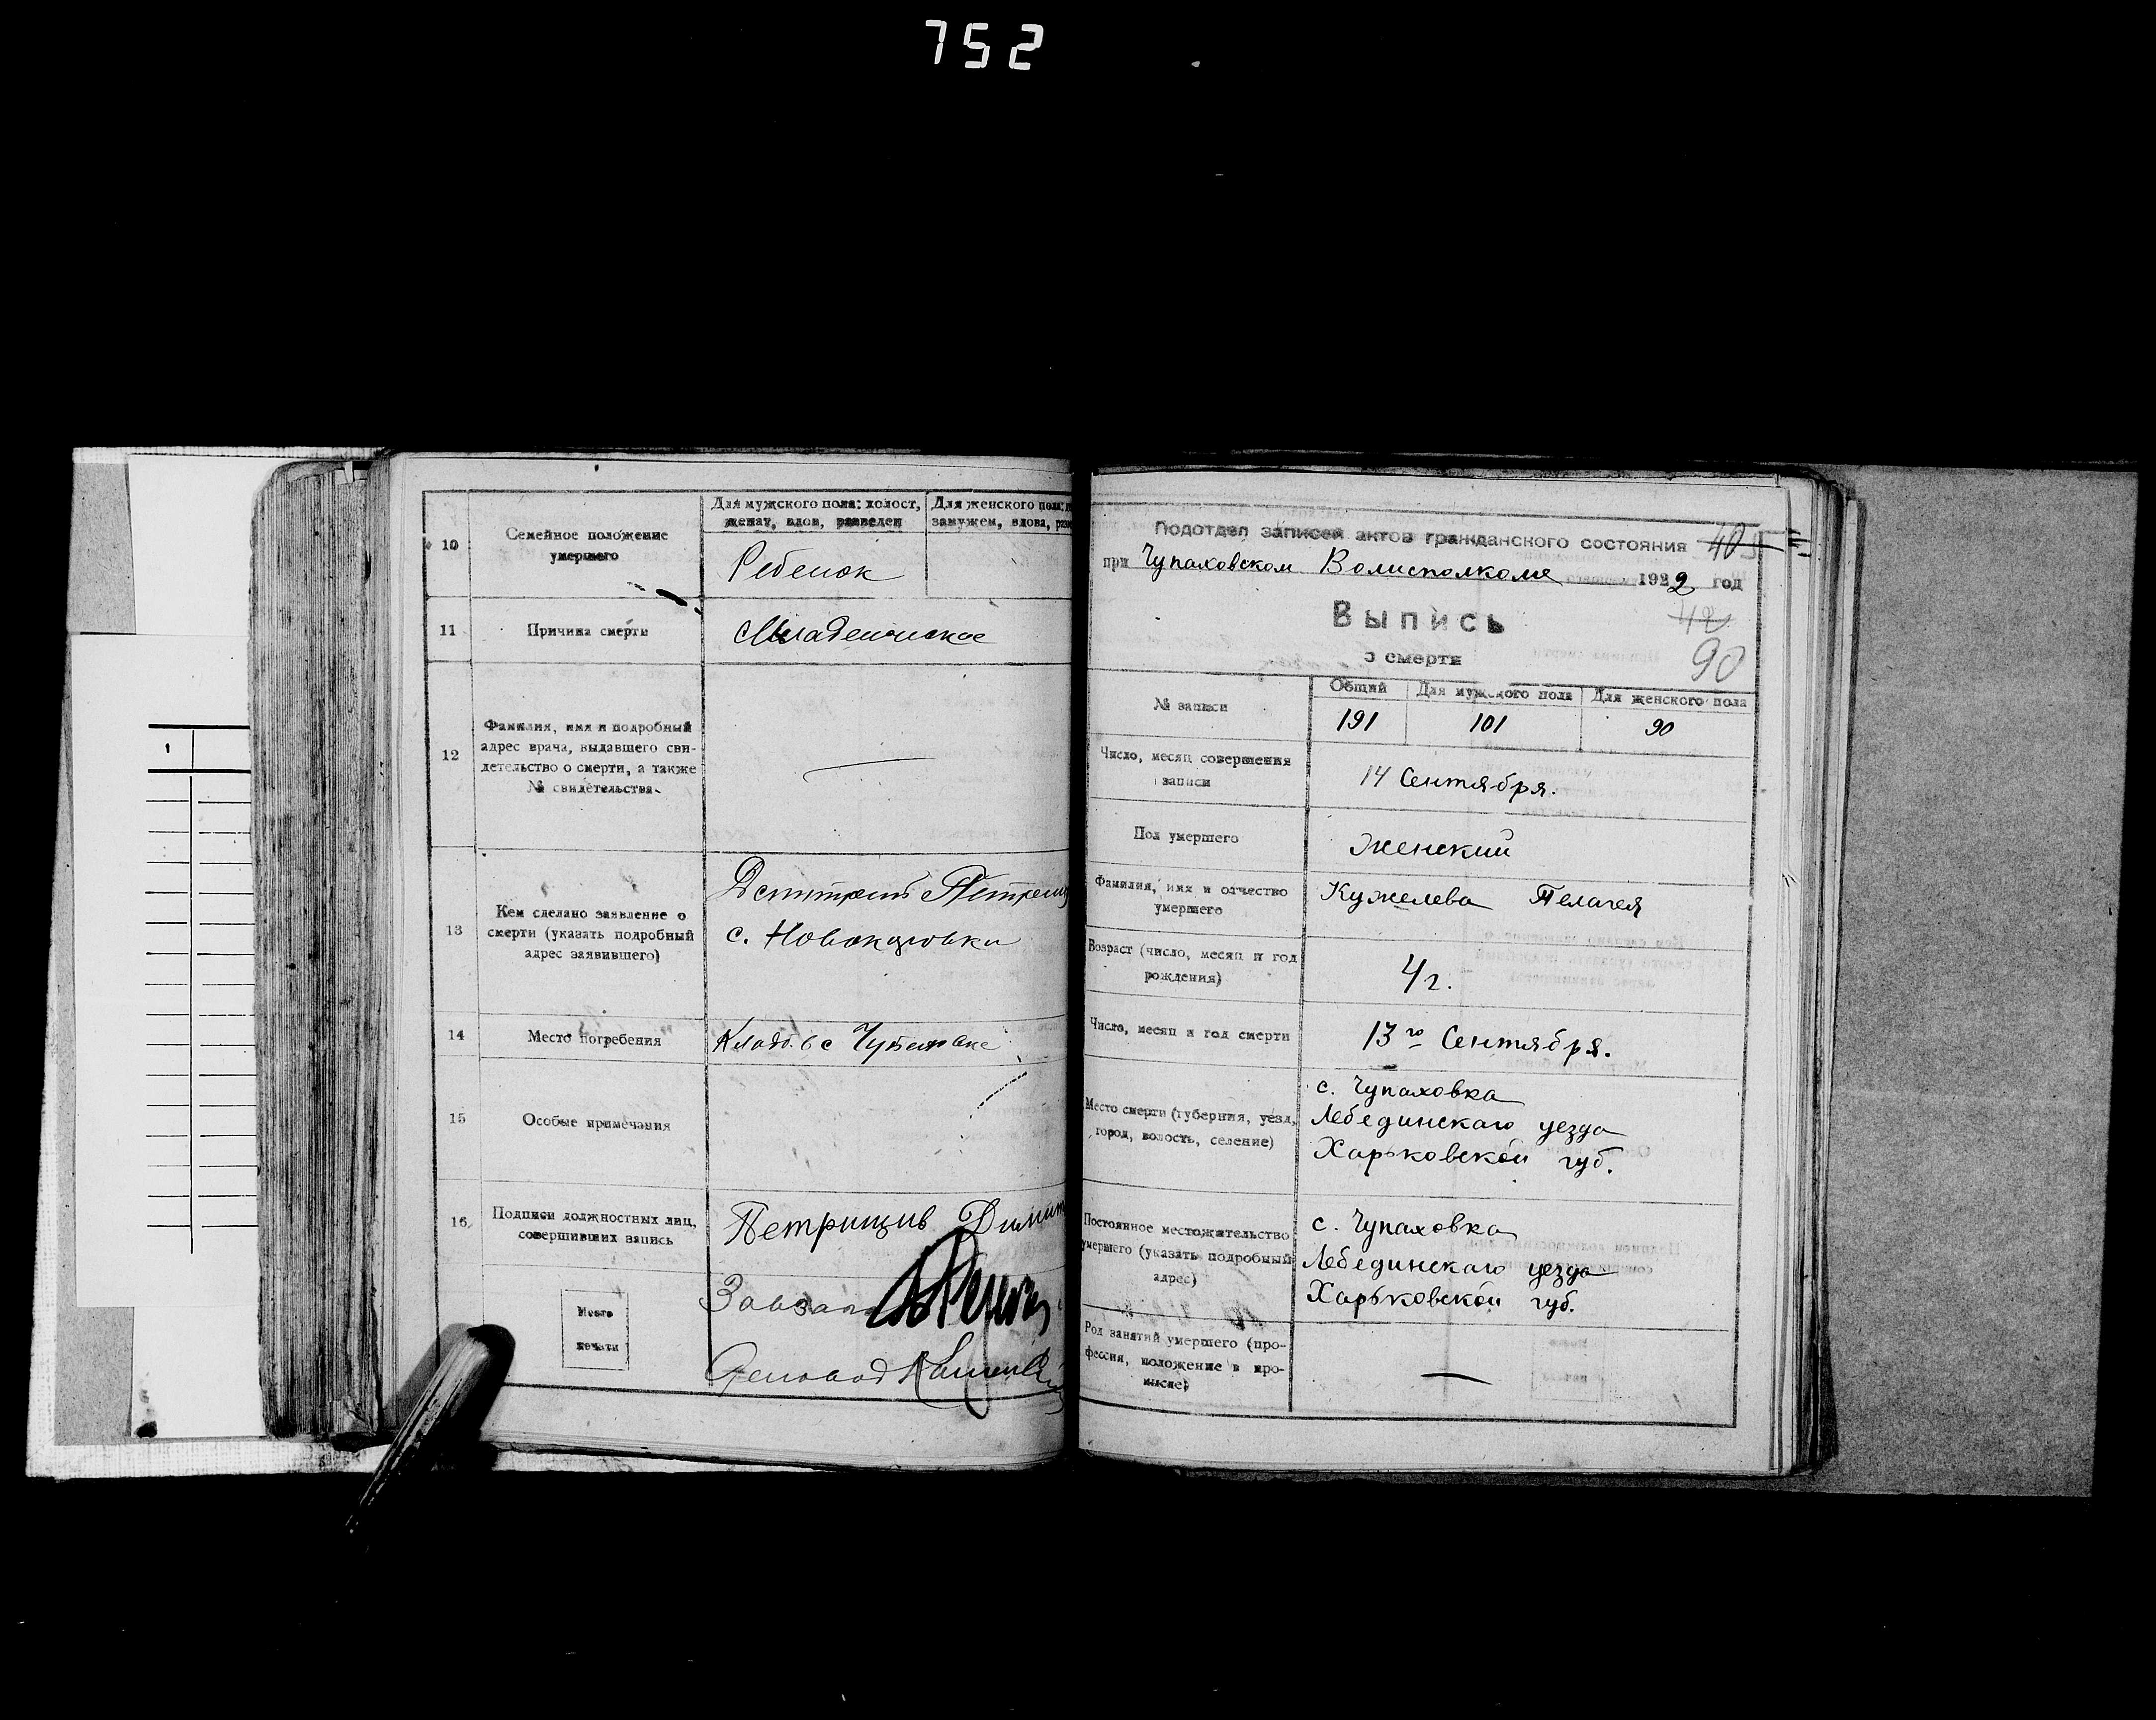 752
10
Семейное положение
умершего
Для мужского пола: холост,
женат, вдов, разведен
Для женского пола:
замужем, вдова,
Ребенок
11
Причина смерти
Младенческое
12
Фамилия, имя и подробный
адрес врача, выдавшего сви-
детельство о смерти, а также
№ свидетельства.
13
Кем сделано заявление о
смерти (указать подробный
адрес заявившего)
с.
14
Место погребения
Кладб. в с
15
Особые примечания
16
Подписи должностных лиц,
совершивших запись
Петрищив
Место
печати
Подотдел записей актов гражданского состояния 40
при Чупаховском Волисполкоме 1922 год
Выпись 42
о смерти 90
№ записи
Общий
Для мужского пола
Для женского пола
191
101
90
Число, месяц совершения
записи
14 Сентября.
Пол умершего
Женский
Фамилия, имя и отчество
умершего
Кужелева Пелагея
Возраст (число, месяц и год
рождения)
4 г.
Число, месяц и год смерти
13го Сентября.
Место смерти (губерния, уезд,
город, волость, селение)
с. Чупаховка
Лебединскаго уезда
Харьковской губ.
Постоянное местожительство
умершего (указать подробный
адрес)
с. Чупаховка
Лебединскаго уезда
Харьковской губ.
Род занятий умершего (про-
фессия, положение в про-
мысле)
1